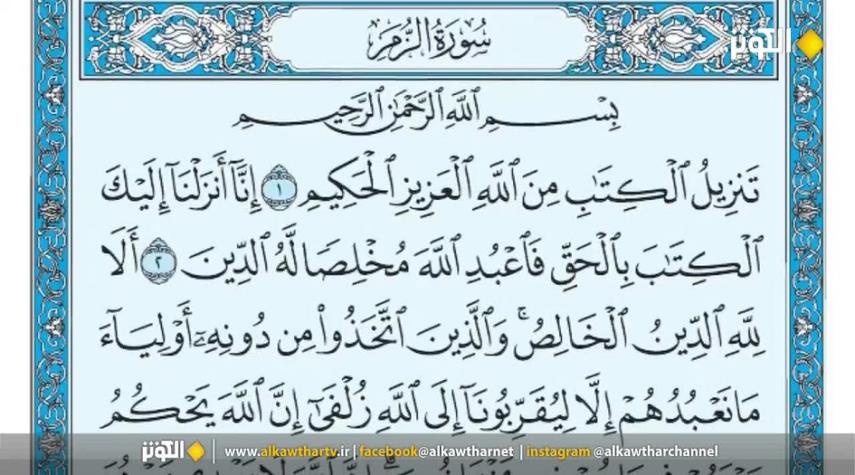 سُورَةُ الزُّمَرِ
الكوثر
بِسْمِ اللَّهِ الرَّحْمَٰنِ الرَّحِيمِ
تَنزِيلُ الْكِتَابِ مِنَ اللَّهِ الْعَزِيزِ الْحَكِيمِ ١ إِنَّا أَنزَلْنَا إِلَيْكَ
الْكِتَابَ بِالْحَقِّ فَاعْبُدِ اللَّهَ مُخْلِصًا لَّهُ الدِّينَ ٢ أَلَا
لِلَّهِ الدِّينُ الْخَالِصُ ۚ وَالَّذِينَ اتَّخَذُوا مِن دُونِهِ أَوْلِيَاءَ
مَا نَعْبُدُهُمْ إِلَّا لِيُقَرِّبُونَا إِلَى اللَّهِ زُلْفَىٰ إِنَّ اللَّهَ يَحْكُمُ
الكوثر www.alkawthartv.ir | facebook@alkawtharnet | instagram @alkawtharchannel